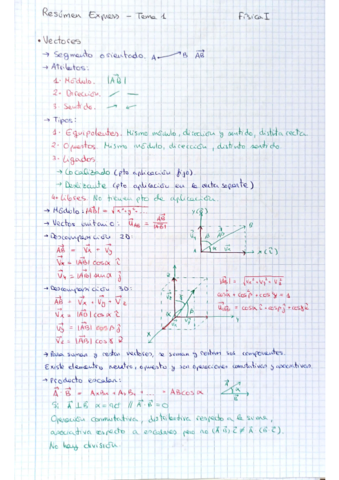 Resúmen Express - Tema 1 Física I
• Vectores
→ Segmento orientado. A B AB
→ Atributos:
1- Módulo. |AB|
2- Dirección.
3- Sentido.
→ Tipos:
1- Equipolentes. Mismo módulo, dirección y sentido, distinta recta.
2- Opuestos. Mismo módulo, dirección, distinto sentido.
3- Ligados
→ Localizado (pto aplicación fijo).
→ Deslizante (pto aplicación en la recta soporte)
4- Libres. No tienen pto de aplicación.
→ Módulo: |AB| =
→ Vector unitario:
→ Descomposición 2D:
AB = Vx + Vy
Vx = |AB| cos α i
Vy = |AB| sen α j
→ Descomposición 3D:
AB = Vx + Vy + Vz
Vx = |AB| cos α i
Vy = |AB| cos β j
Vz = |AB| cos γ
→ Para sumar y restar vectores, se suman y restan sus componentes.
Existe elemento neutro, opuesto y son operaciones conmutativas y asociativas.
→ Producto escalar:
A · B = = AB cos α
Si A ⊥ B A · B = 0
Operación conmutativa, distributiva respecto a la suma,
asociativa respecto a escalares pero no
No hay división.